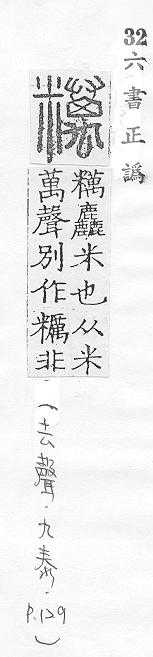 32六書正譌
䊪
䊪麤米也从米
萬聲別作糲非
(去聲·九泰·P.129)